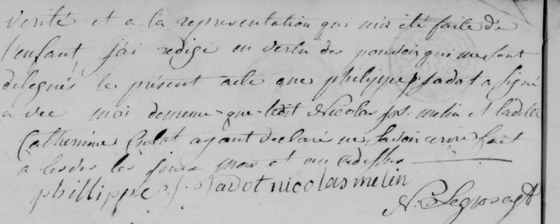 verité et a la representation qui m'a été faite de
l'enfant j'ai redigé en vertu des pouvoir qui me sont
delegués le présent acte que philippe jadot a signé
avec moi de meme que Nicolas jos. melin et ladite
Catherine ayant declaré ne savoir ecrire fait
a les jour mois et an
phillippe j. Jadot nicolas melin